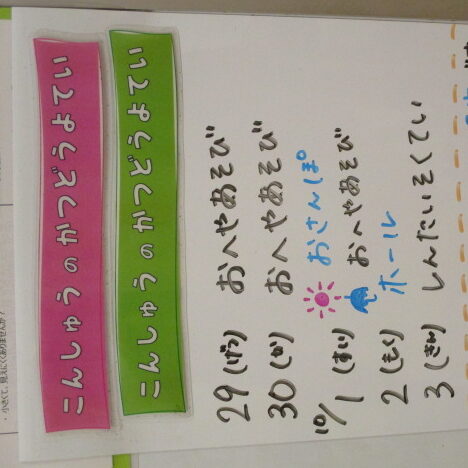 こんしゅうのかつどうよてい
こんしゅうのかつどうよてい
29(げつ) おへやあそび
30(か) おへやあそび
10/1(すい) おさんぽ
おへやあそび
2(もく) ホール
3(きん) しんたいそくてい
小さくて、見えにくくありませんか?